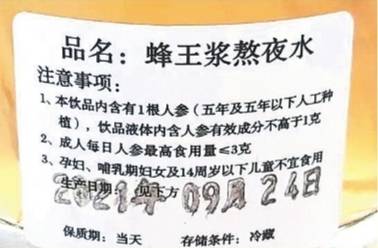 品名：蜂王浆熬夜水
注意事项：
1、本饮品内含有1根人参（五年及五年以下人工种
植），饮品液体内含人参有效成分不高于1克
2、成人每日人参最高食用量≤3克
3、孕妇、哺乳期妇女及14周岁以下儿童不宜食用
生产日期：见下方
2021年09月24日
保质期：当天 存储条件：冷藏